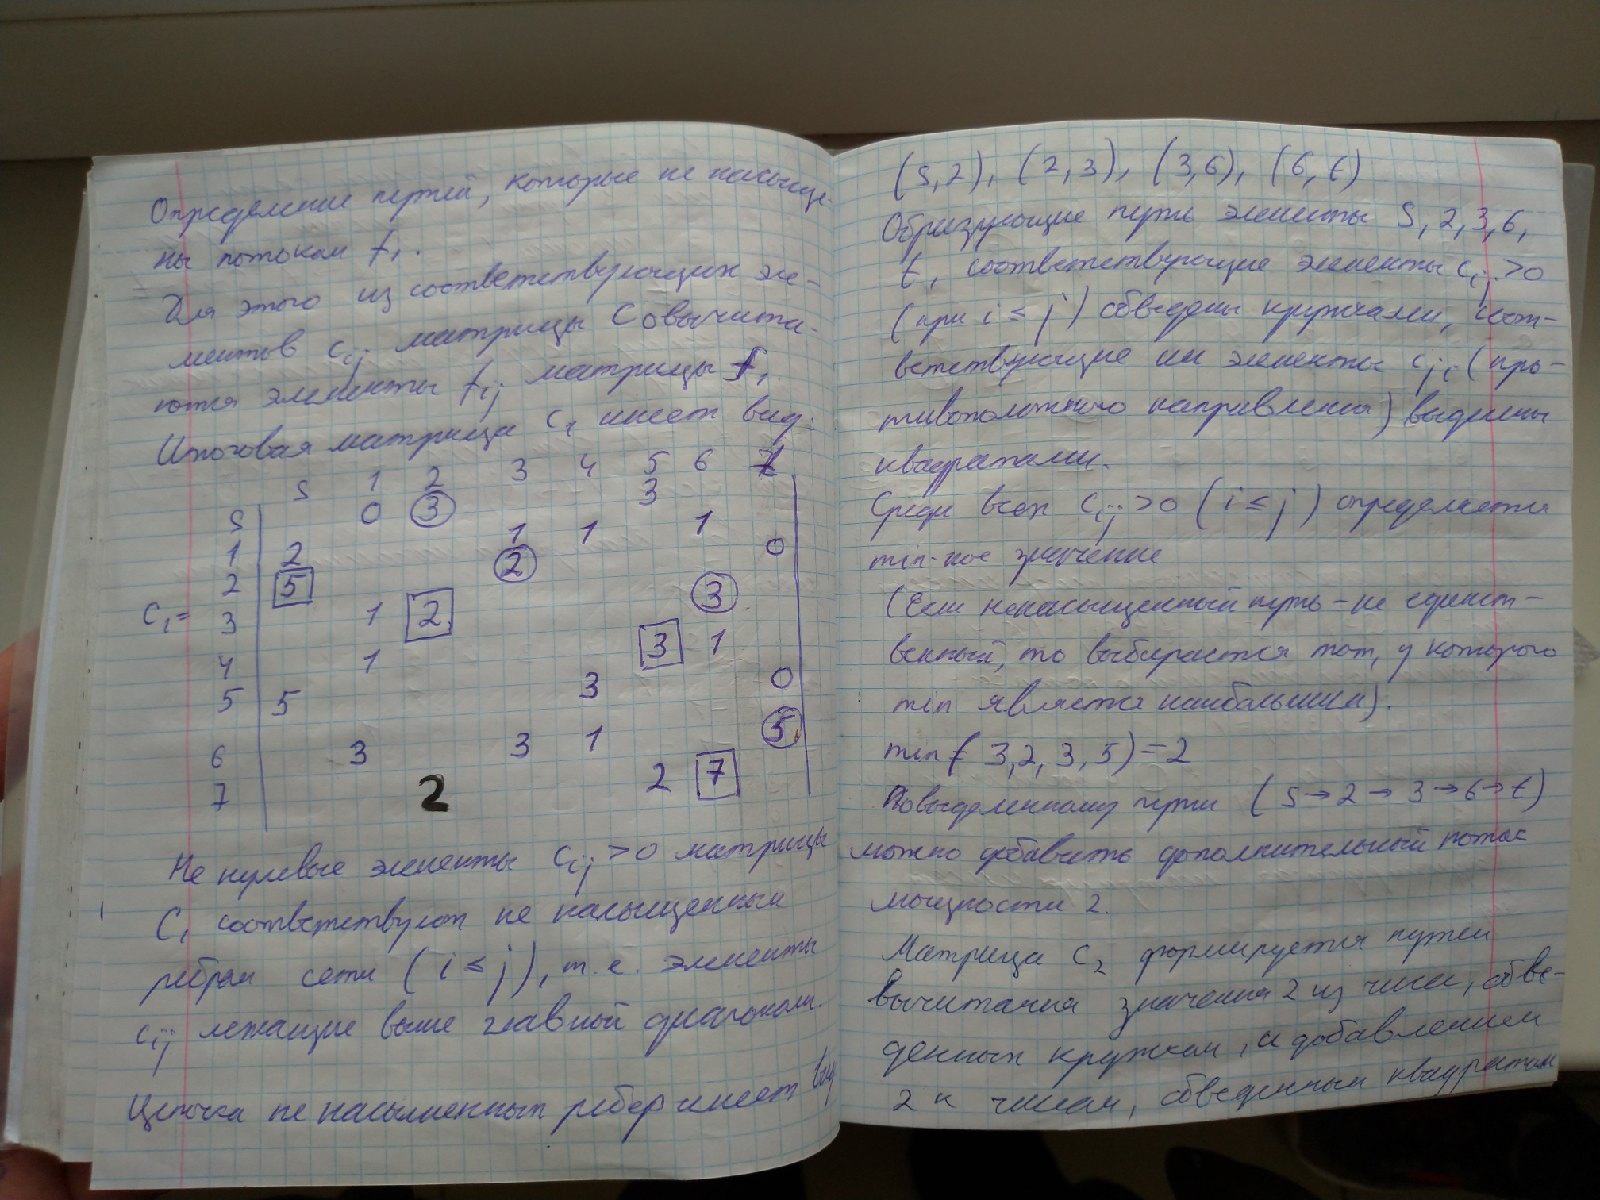 Определение путей, которые не насыще-
ны потоком f₁.
Для этого из соответствующих эле-
ментов cᵢⱼ матрицы C₀ вычита-
ются элементы fᵢⱼ матрицы f₁
Итоговая матрица C₁ имеет вид:
S 1 2 3 4 5 6 t
S 0 3 3
1 2 1 1 1 0
2 5 2
C₁= 3 1 2 3
4 1 3 1
5 5 3 0
6 3 3 1 5
7 2 2 7
Не нулевые элементы cᵢⱼ>0 матрицы
C₁ соответствуют не насыщенным
ребрам сети (i ≤ j), т.е. элементы
cᵢⱼ лежащие выше главной диагонали.
Цепочка не насыщенных ребер имеет вид
(S,2), (2,3), (3,6), (6,t)
Образующие путь элементы S, 2, 3, 6,
t, соответствующие элементы cᵢⱼ>0
(при i ≤ j) обведены кружками, соот-
ветствующие им элементы cⱼᵢ (про-
тивоположного направления) выделены
квадратами.
Среди всех cᵢⱼ>0 (i ≤ j) определяется
min-ное значение
(Если ненасыщенный путь - не единст-
венный, то выбирается тот, у которого
min является наибольшим).
min( 3, 2, 3, 5) = 2
По выделенному пути (S→2→3→6→t)
можно добавить дополнительный поток
мощности 2.
Матрица C₂ формируется путем
вычитания значения 2 из чисел, обве-
денных кружком, и добавлением
2 к числам, обведенным квадратом